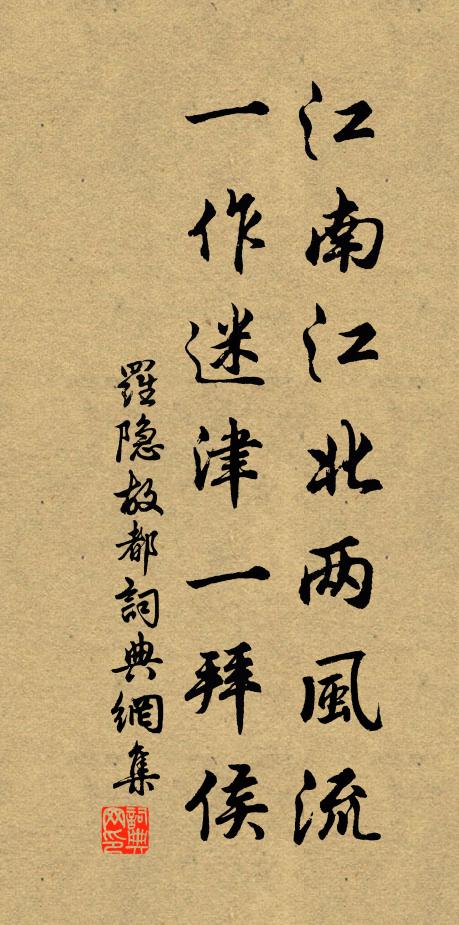 江南江北两風流
一作迷津一拜侯
羅隐故都詞典網集
詞典網印